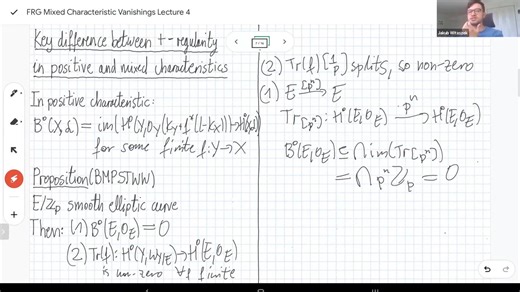 FRG Mixed Characteristic Vanishings Lecture 4
Jakub Witaszek
Key difference between +-regularity
in positive and mixed characteristics
In positive characteristic:
B⁰(X,L) = im(H⁰(Y,O_Y(K_Y+f*(L-K_X)))→H⁰(X,L))
for some finite f:Y→X
Proposition (BMPSTWW)
E/ℤp smooth elliptic curve
Then: (1) B⁰(E,O_E)=0
(2) Tr(f): H⁰(Y,ω_Y/E)→H⁰(E,O_E)
is non-zero ∀f finite
(2) Tr(f)[1/p] splits, so non-zero
(1) E [pⁿ]→ E
Tr[pⁿ]: H⁰(E,O_E) pⁿ→ H⁰(E,O_E)
B⁰(E,O_E) ⊆ ∩ im(Tr[pⁿ])
= ∩ pⁿℤp = 0